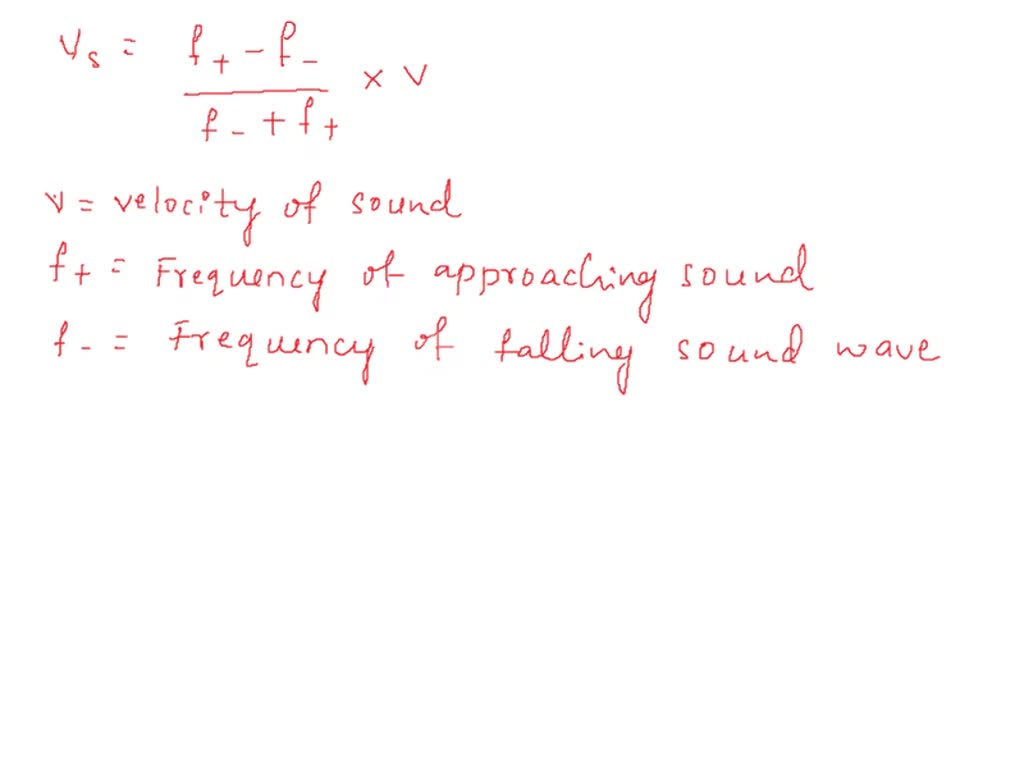 Vs = f+ - f- / f- + f+ × V
v = velocity of sound
f+ = Frequency of approaching sound
f- = Frequency of falling sound wave